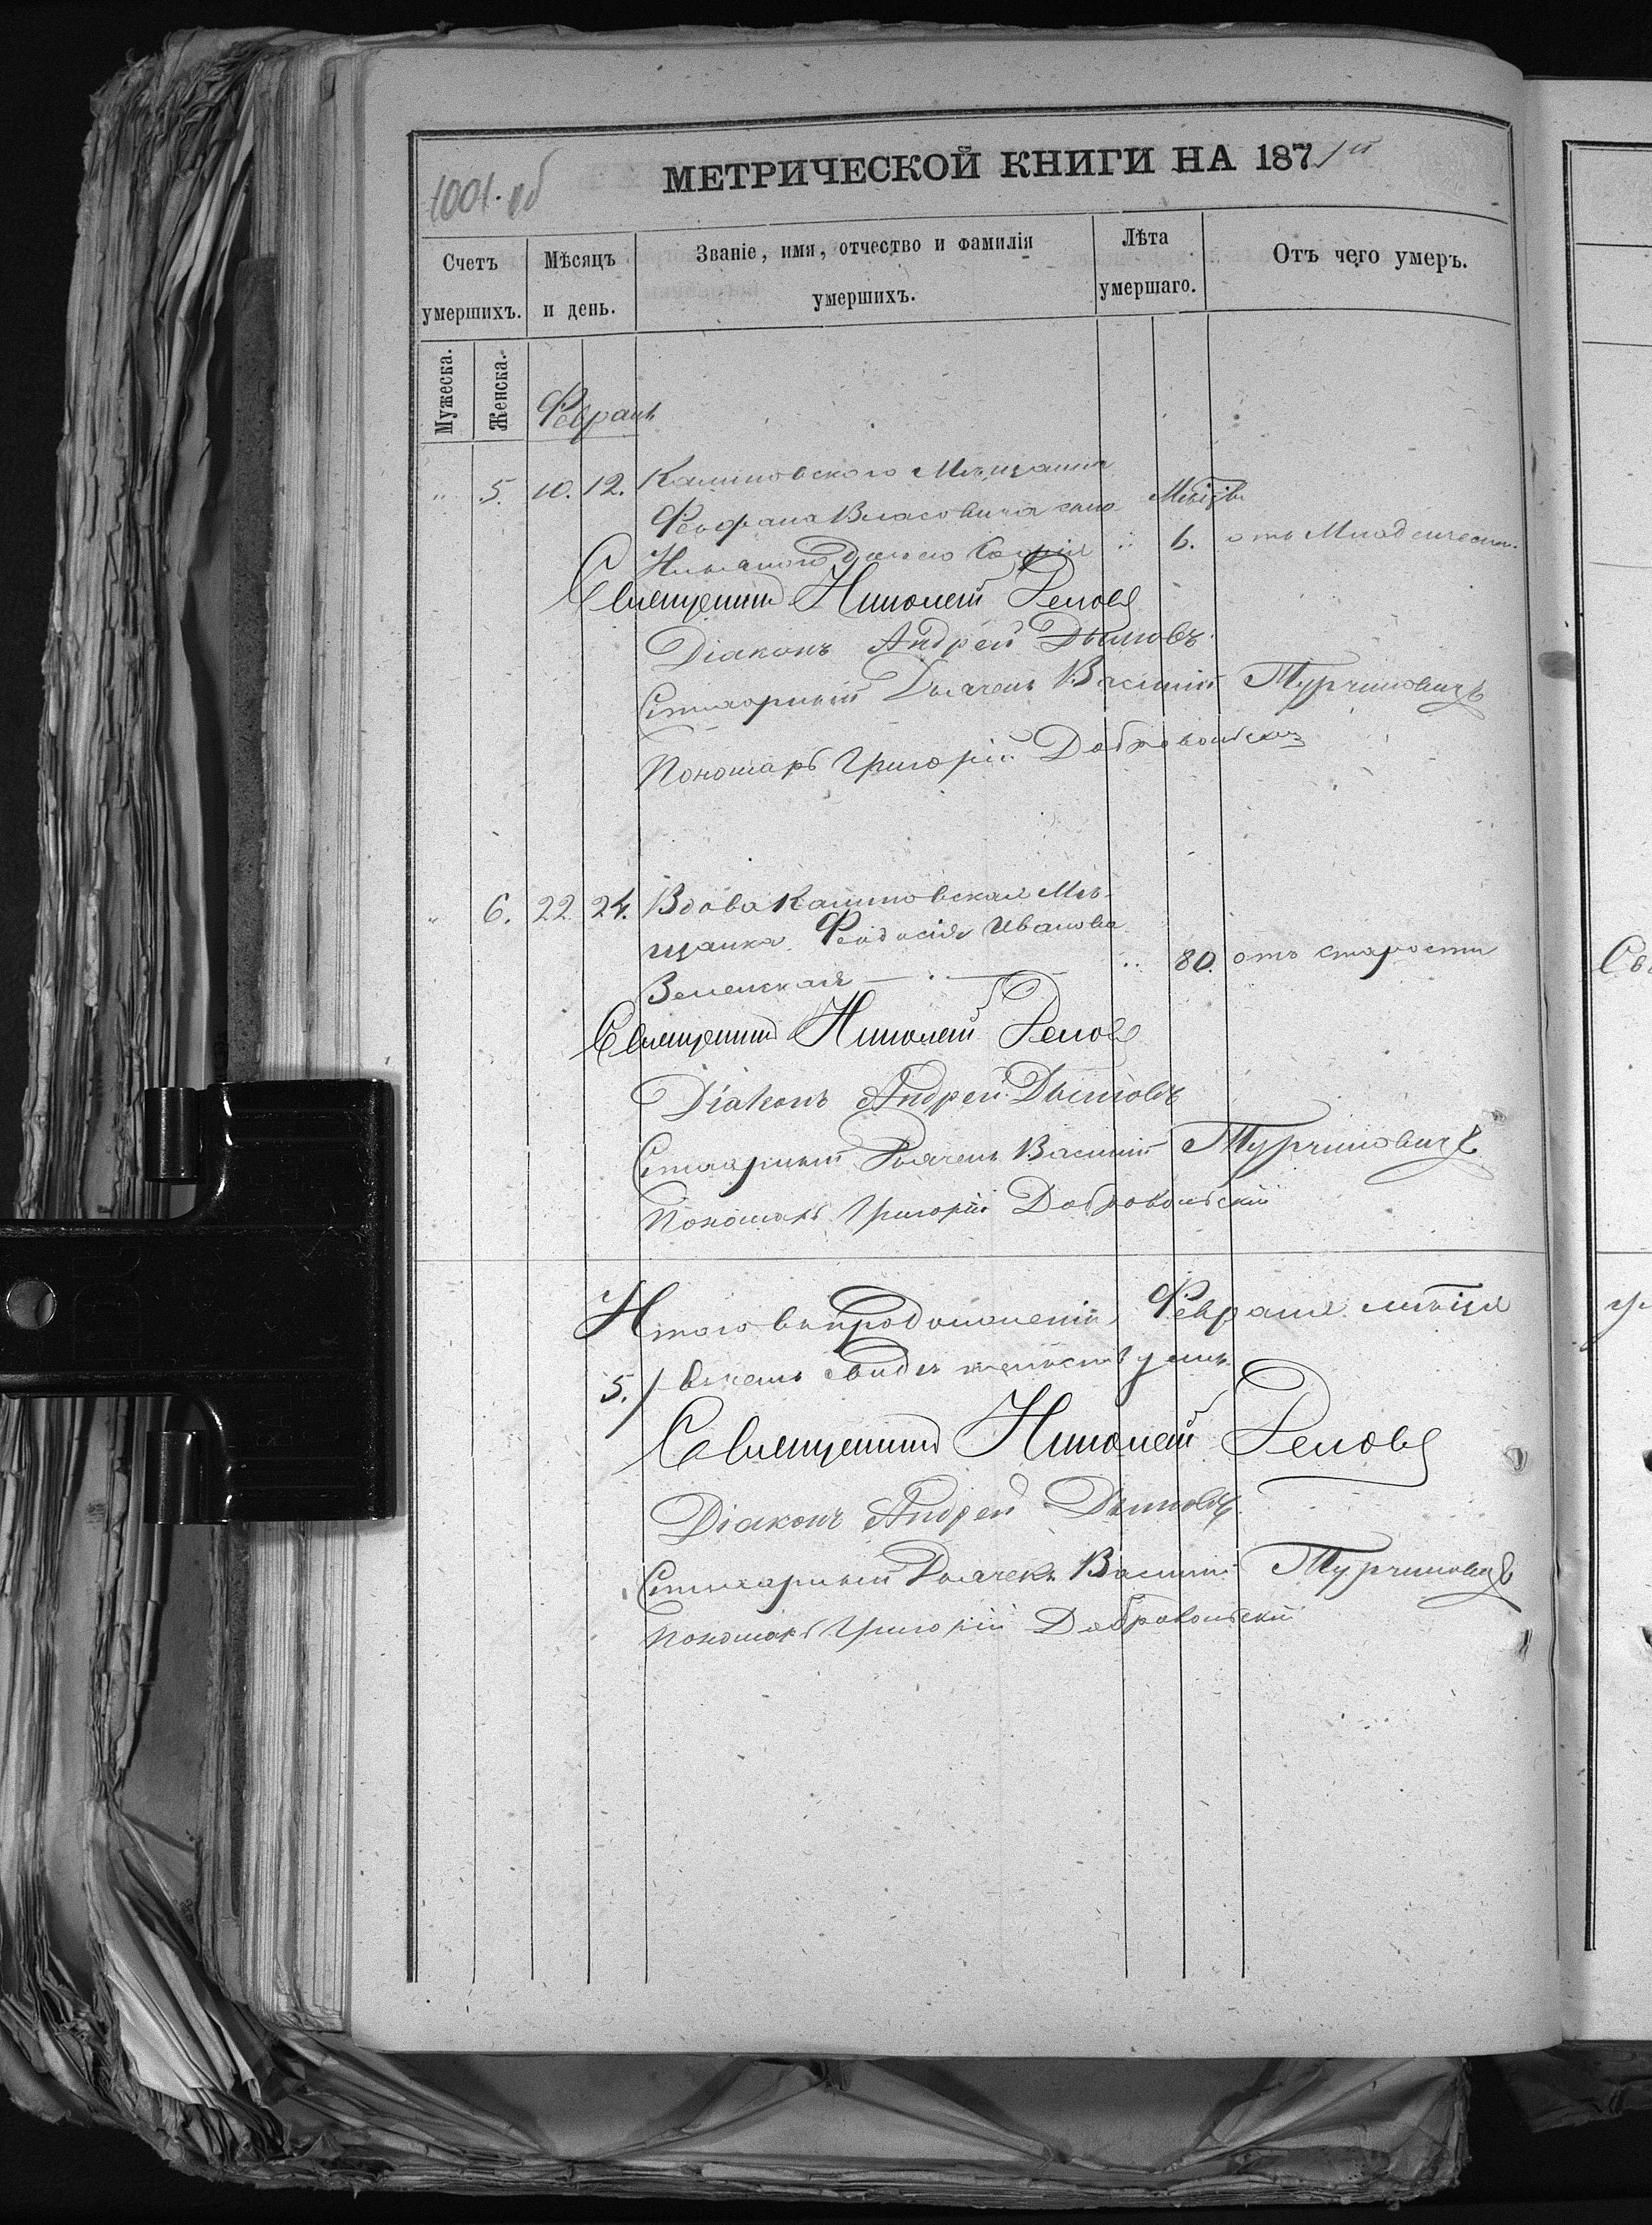 1001. об
МЕТРИЧЕСКОЙ КНИГИ НА 1871й
Счетъ умершихъ.
Мѣсяцъ и день.
Званіе, имя, отчество и фамилія умершихъ.
Лѣта умершаго.
Отъ чего умеръ.
Мужеска.
Женска.
Февраль
" 5. 10. 12. Калиновского Мѣщанина
Феофана Власовича
дочь его 6. отъ Младенческой
Священник Николай Ремовъ
Діаконъ Андрей Дымовъ
Стихарный Дьячекъ Василій Турчиновичъ
Пономарь Григорій Добровольскій
" 6. 22. 24. Вдова Калиновская Мѣ-
щанка Феодосія Иванова
Зеленская " 80. отъ старости
Священник Николай Ремовъ
Діаконъ Андрей Дымовъ
Стихарный Дьячекъ Василій Турчиновичъ
Пономарь Григорій Добровольскій
Итого въ продолженіи Февраля мѣсяца
5.) въ чемъ свидѣтельствуемъ
Священник Николай Ремовъ
Діаконъ Андрей Дымовъ
Стихарный Дьячекъ Василій Турчиновичъ
Пономарь Григорій Добровольскій